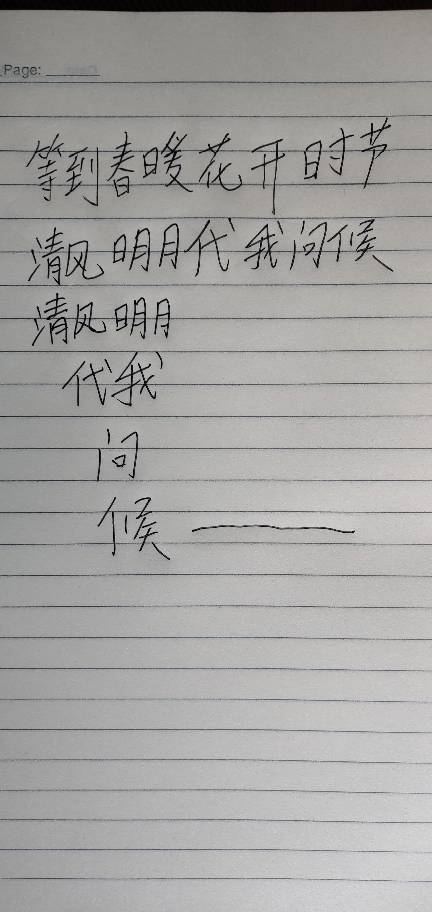 Page:
等到春暖花开时节
清风明月代我问候
清风明月
代我
问
候——